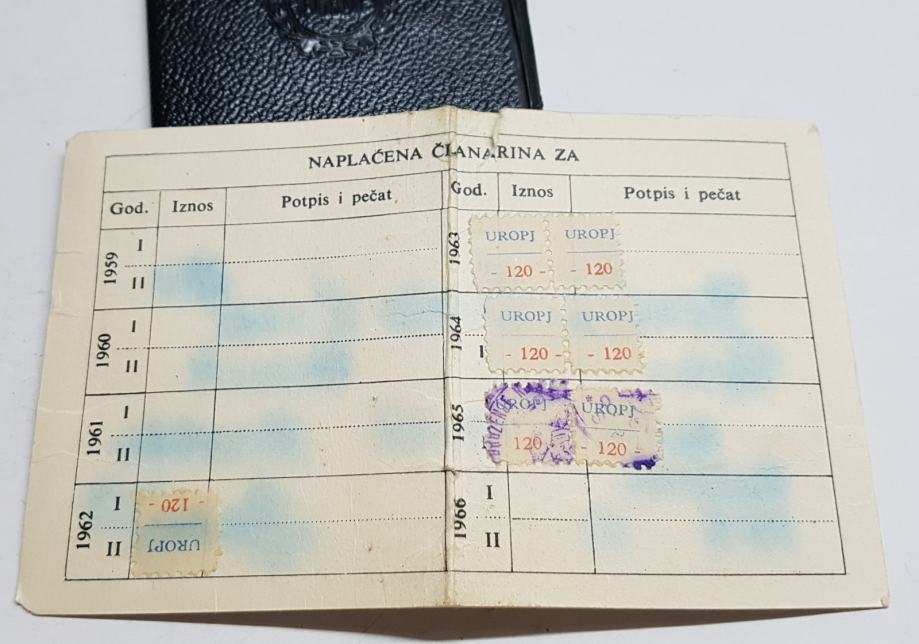 NAPLAĆENA ČLANARINA ZA
God. Iznos Potpis i pečat
1959 I
II
1960 I
II
1961 I
II
1962 I
II
- 120 -
UROPJ
God. Iznos Potpis i pečat
1963
UROPJ UROPJ
- 120 - - 120
1964
UROPJ UROPJ
- 120 - - 120
1965
UROPJ UROPJ
120 - - 120 -
1966 I
II